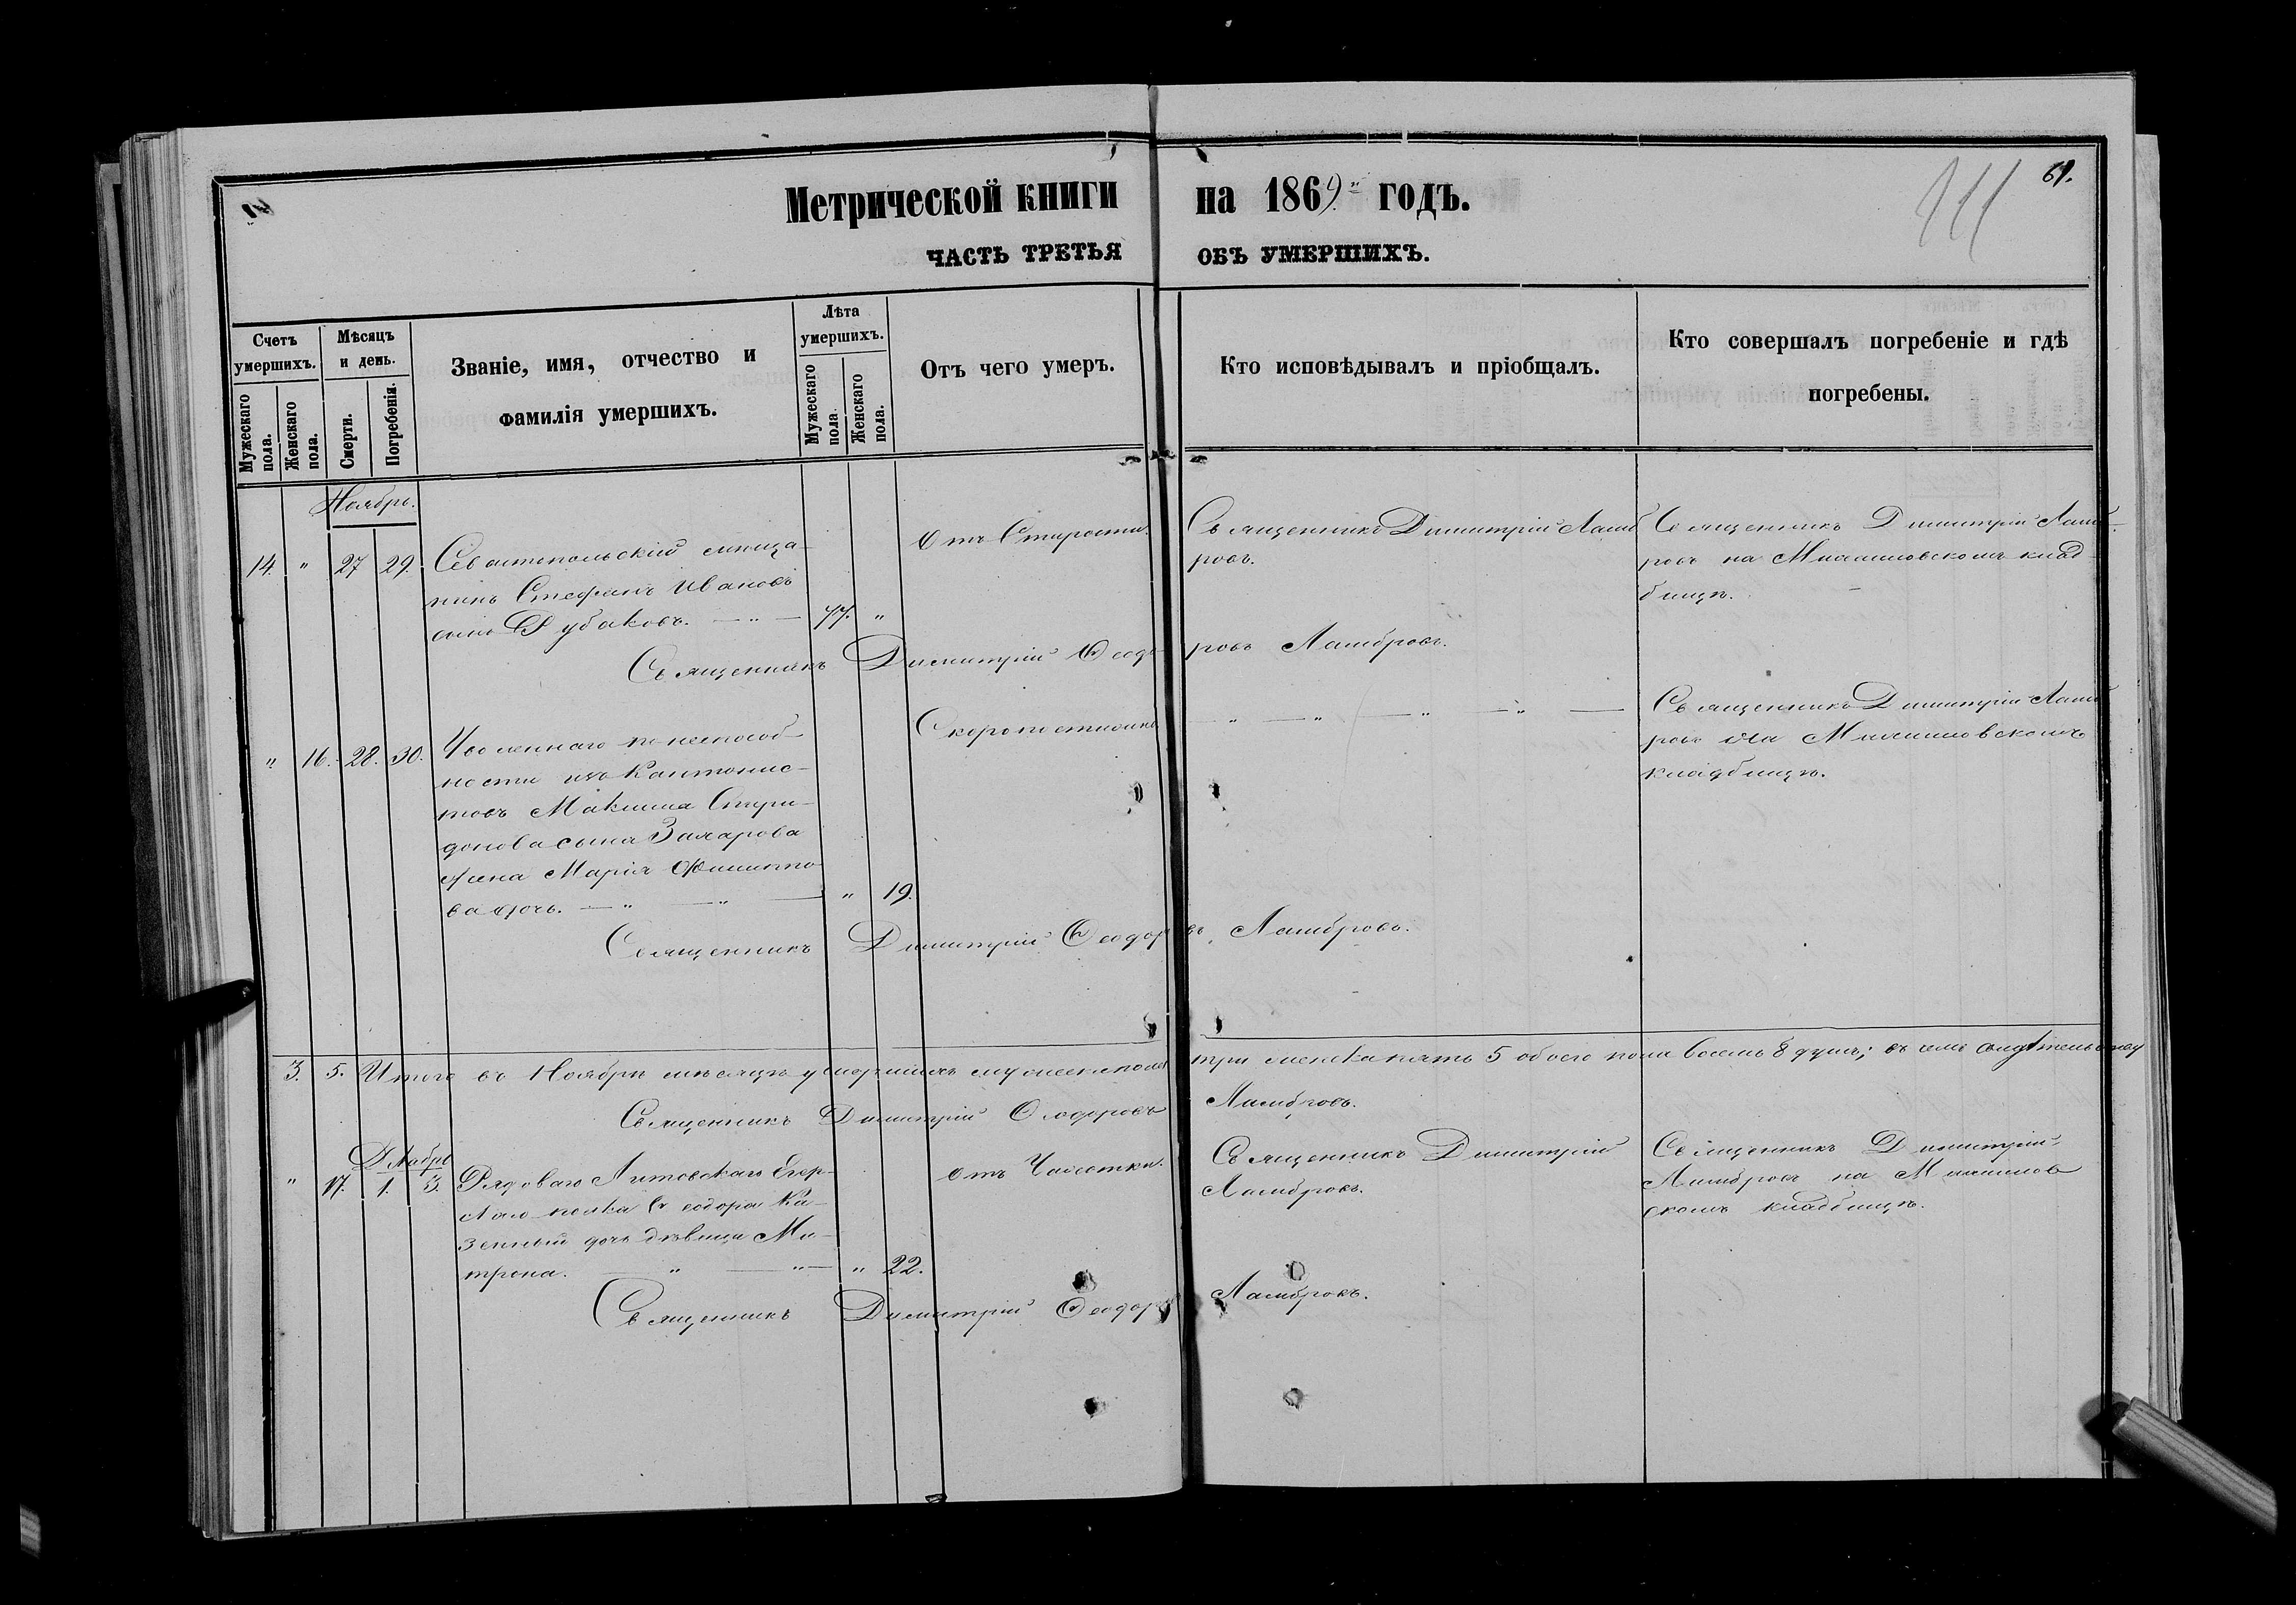 61.
Метрической книги на 1869 годъ.
ЧАСТЬ ТРЕТЬЯ ОБЪ УМЕРШИХЪ.
Счетъ умершихъ.
Мужескаго пола.
Женскаго пола.
Мѣсяцъ и день.
Смерти.
Погребенія.
Званіе, имя, отчество и
фамилія умершихъ.
Лѣта умершихъ.
Мужескаго пола.
Женскаго пола.
Отъ чего умеръ.
Кто исповѣдывалъ и пріобщалъ.
Кто совершалъ погребеніе и гдѣ
погребены.
Ноябрь.
14. " 27 29. Севастопольскій мѣща-
нинъ Стефанъ Ивановъ
сынъ Рубаковъ. — " — 77. "
Отъ Старости.
Священникъ Димитрій Ламб
ровъ.
Священникъ Димитрій Ламб-
ровъ на Михаиловскомъ клад-
бищѣ.
Священникъ Димитрій Ѳеодо ровъ Ламбровъ.
" 16. 28. 30. Уволеннаго по неспособ-
ности изъ Кантонис-
товъ Максима Спири-
донова сына Захарова
жена Марія Филиппо-
ва дочь. — " — " — " 19.
Скоропостижно
— " — " — " — " —
Священникъ Димитрій Ламб
ровъ на Михаиловскомъ
кладбищѣ.
Священникъ Димитрій Ѳеодоровъ Ламбровъ.
3. 5. Итого въ Ноябрѣ мѣсяцѣ умершихъ мужеска пола три женска пять 5 обоего пола восемь 8 душъ; въ чемъ свидѣтельствую
Священникъ Димитрій Ѳеодоровъ Ламбровъ.
Декабрь
" 17. 1. 3. Рядоваго Литовскаго Егер-
скаго полка Ѳеодора Ка-
зенный дочь дѣвица Ма-
трона. — " — " — " 22.
отъ Чахотки.
Священникъ Димитрій
Ламбровъ.
Священникъ Димитрій
Ламбровъ на Михаилов
скомъ кладбищѣ.
Священникъ Димитрій Ѳеодоровъ Ламбровъ.